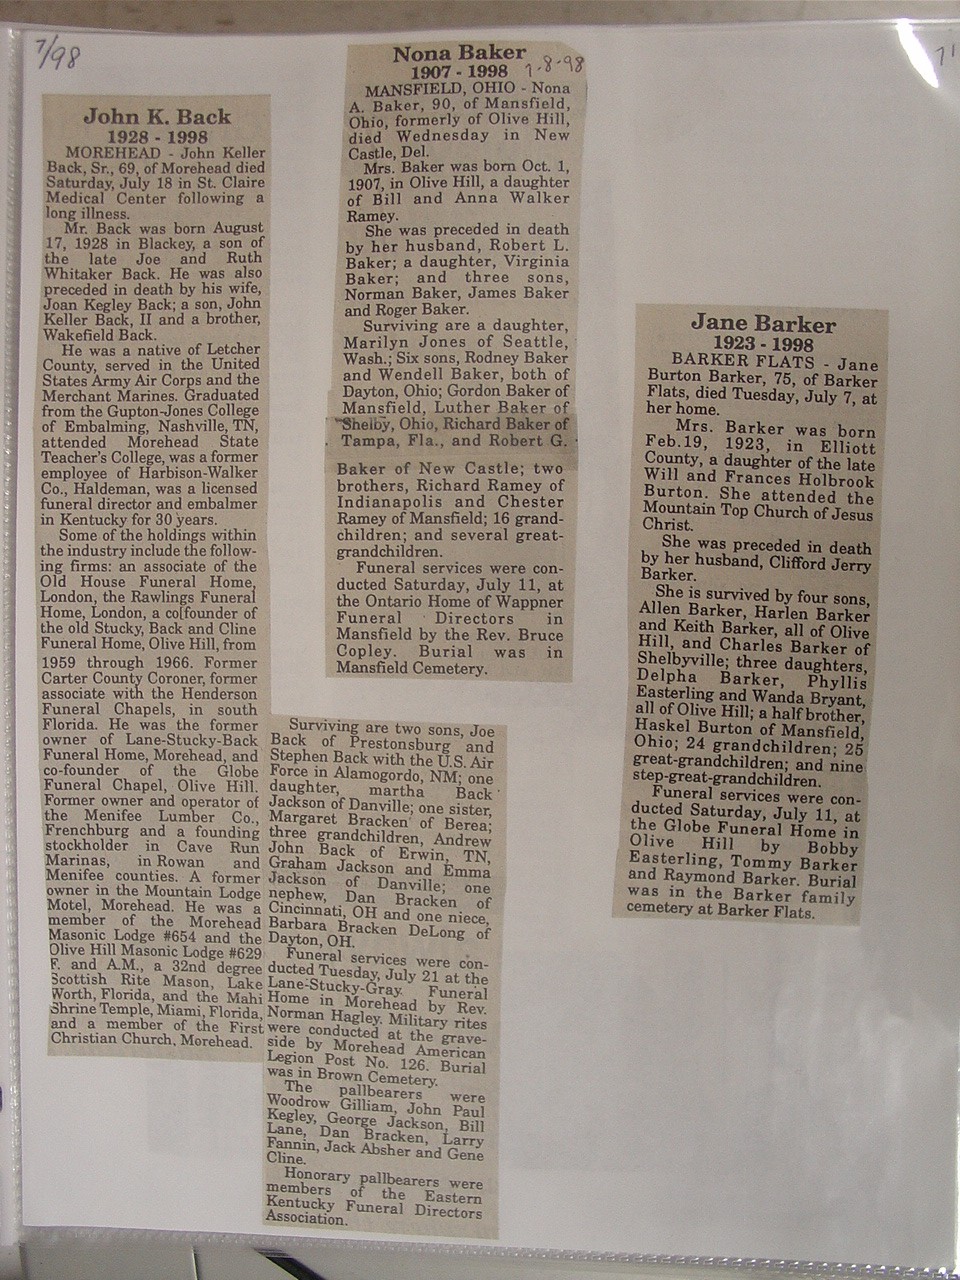 7/98
John K. Back
1928 - 1998
MOREHEAD - John Keller
Back, Sr., 69, of Morehead died
Saturday, July 18 in St. Claire
Medical Center following a
long illness.
Mr. Back was born August
17, 1928 in Blackey, a son of
the late Joe and Ruth
Whitaker Back. He was also
preceded in death by his wife,
Joan Kegley Back; a son, John
Keller Back, II and a brother,
Wakefield Back.
He was a native of Letcher
County, served in the United
States Army Air Corps and the
Merchant Marines. Graduated
from the Gupton-Jones College
of Embalming, Nashville, TN,
attended Morehead State
Teacher's College, was a former
employee of Harbison-Walker
Co., Haldeman, was a licensed
funeral director and embalmer
in Kentucky for 30 years.
Some of the holdings within
the industry include the follow-
ing firms: an associate of the
Old House Funeral Home,
London, the Rawlings Funeral
Home, London, a cofounder of
the old Stucky, Back and Cline
Funeral Home, Olive Hill, from
1959 through 1966. Former
Carter County Coroner, former
associate with the Henderson
Funeral Chapels, in south
Florida. He was the former
owner of Lane-Stucky-Back
Funeral Home, Morehead, and
co-founder of the Globe
Funeral Chapel, Olive Hill.
Former owner and operator of
the Menifee Lumber Co.,
Frenchburg and a founding
stockholder in Cave Run
Marinas, in Rowan and
Menifee counties. A former
owner in the Mountain Lodge
Motel, Morehead. He was a
member of the Morehead
Masonic Lodge #654 and the
Olive Hill Masonic Lodge #629
F. and A.M., a 32nd degree
Scottish Rite Mason, Lake
Worth, Florida, and the Mahi
Shrine Temple, Miami, Florida,
and a member of the First
Christian Church, Morehead.
Surviving are two sons, Joe
Back of Prestonsburg and
Stephen Back with the U.S. Air
Force in Alamogordo, NM; one
daughter, martha Back
Jackson of Danville; one sister,
Margaret Bracken of Berea;
three grandchildren, Andrew
John Back of Erwin, TN,
Graham Jackson and Emma
Jackson of Danville; one
nephew, Dan Bracken of
Cincinnati, OH and one niece,
Barbara Bracken DeLong of
Dayton, OH.
Funeral services were con-
ducted Tuesday, July 21 at the
Lane-Stucky-Gray Funeral
Home in Morehead by Rev.
Norman Hagley. Military rites
were conducted at the grave-
side by Morehead American
Legion Post No. 126. Burial
was in Brown Cemetery.
The pallbearers were
Woodrow Gilliam, John Paul
Kegley, George Jackson, Bill
Lane, Dan Bracken, Larry
Fannin, Jack Absher and Gene
Cline.
Honorary pallbearers were
members of the Eastern
Kentucky Funeral Directors
Association.
Nona Baker
1907 - 1998 7-8-98
MANSFIELD, OHIO - Nona
A. Baker, 90, of Mansfield,
Ohio, formerly of Olive Hill,
died Wednesday in New
Castle, Del.
Mrs. Baker was born Oct. 1,
1907, in Olive Hill, a daughter
of Bill and Anna Walker
Ramey.
She was preceded in death
by her husband, Robert L.
Baker; a daughter, Virginia
Baker; and three sons,
Norman Baker, James Baker
and Roger Baker.
Surviving are a daughter,
Marilyn Jones of Seattle,
Wash.; Six sons, Rodney Baker
and Wendell Baker, both of
Dayton, Ohio; Gordon Baker of
Mansfield, Luther Baker of
Shelby, Ohio, Richard Baker of
Tampa, Fla., and Robert G.
Baker of New Castle; two
brothers, Richard Ramey of
Indianapolis and Chester
Ramey of Mansfield; 16 grand-
children; and several great-
grandchildren.
Funeral services were con-
ducted Saturday, July 11, at
the Ontario Home of Wappner
Funeral Directors in
Mansfield by the Rev. Bruce
Copley. Burial was in
Mansfield Cemetery.
Jane Barker
1923 - 1998
BARKER FLATS - Jane
Burton Barker, 75, of Barker
Flats, died Tuesday, July 7, at
her home.
Mrs. Barker was born
Feb.19, 1923, in Elliott
County, a daughter of the late
Will and Frances Holbrook
Burton. She attended the
Mountain Top Church of Jesus
Christ.
She was preceded in death
by her husband, Clifford Jerry
Barker.
She is survived by four sons,
Allen Barker, Harlen Barker
and Keith Barker, all of Olive
Hill, and Charles Barker of
Shelbyville; three daughters,
Delpha Barker, Phyllis
Easterling and Wanda Bryant,
all of Olive Hill; a half brother,
Haskel Burton of Mansfield,
Ohio; 24 grandchildren; 25
great-grandchildren; and nine
step-great-grandchildren.
Funeral services were con-
ducted Saturday, July 11, at
the Globe Funeral Home in
Olive Hill by Bobby
Easterling, Tommy Barker
and Raymond Barker. Burial
was in the Barker family
cemetery at Barker Flats.